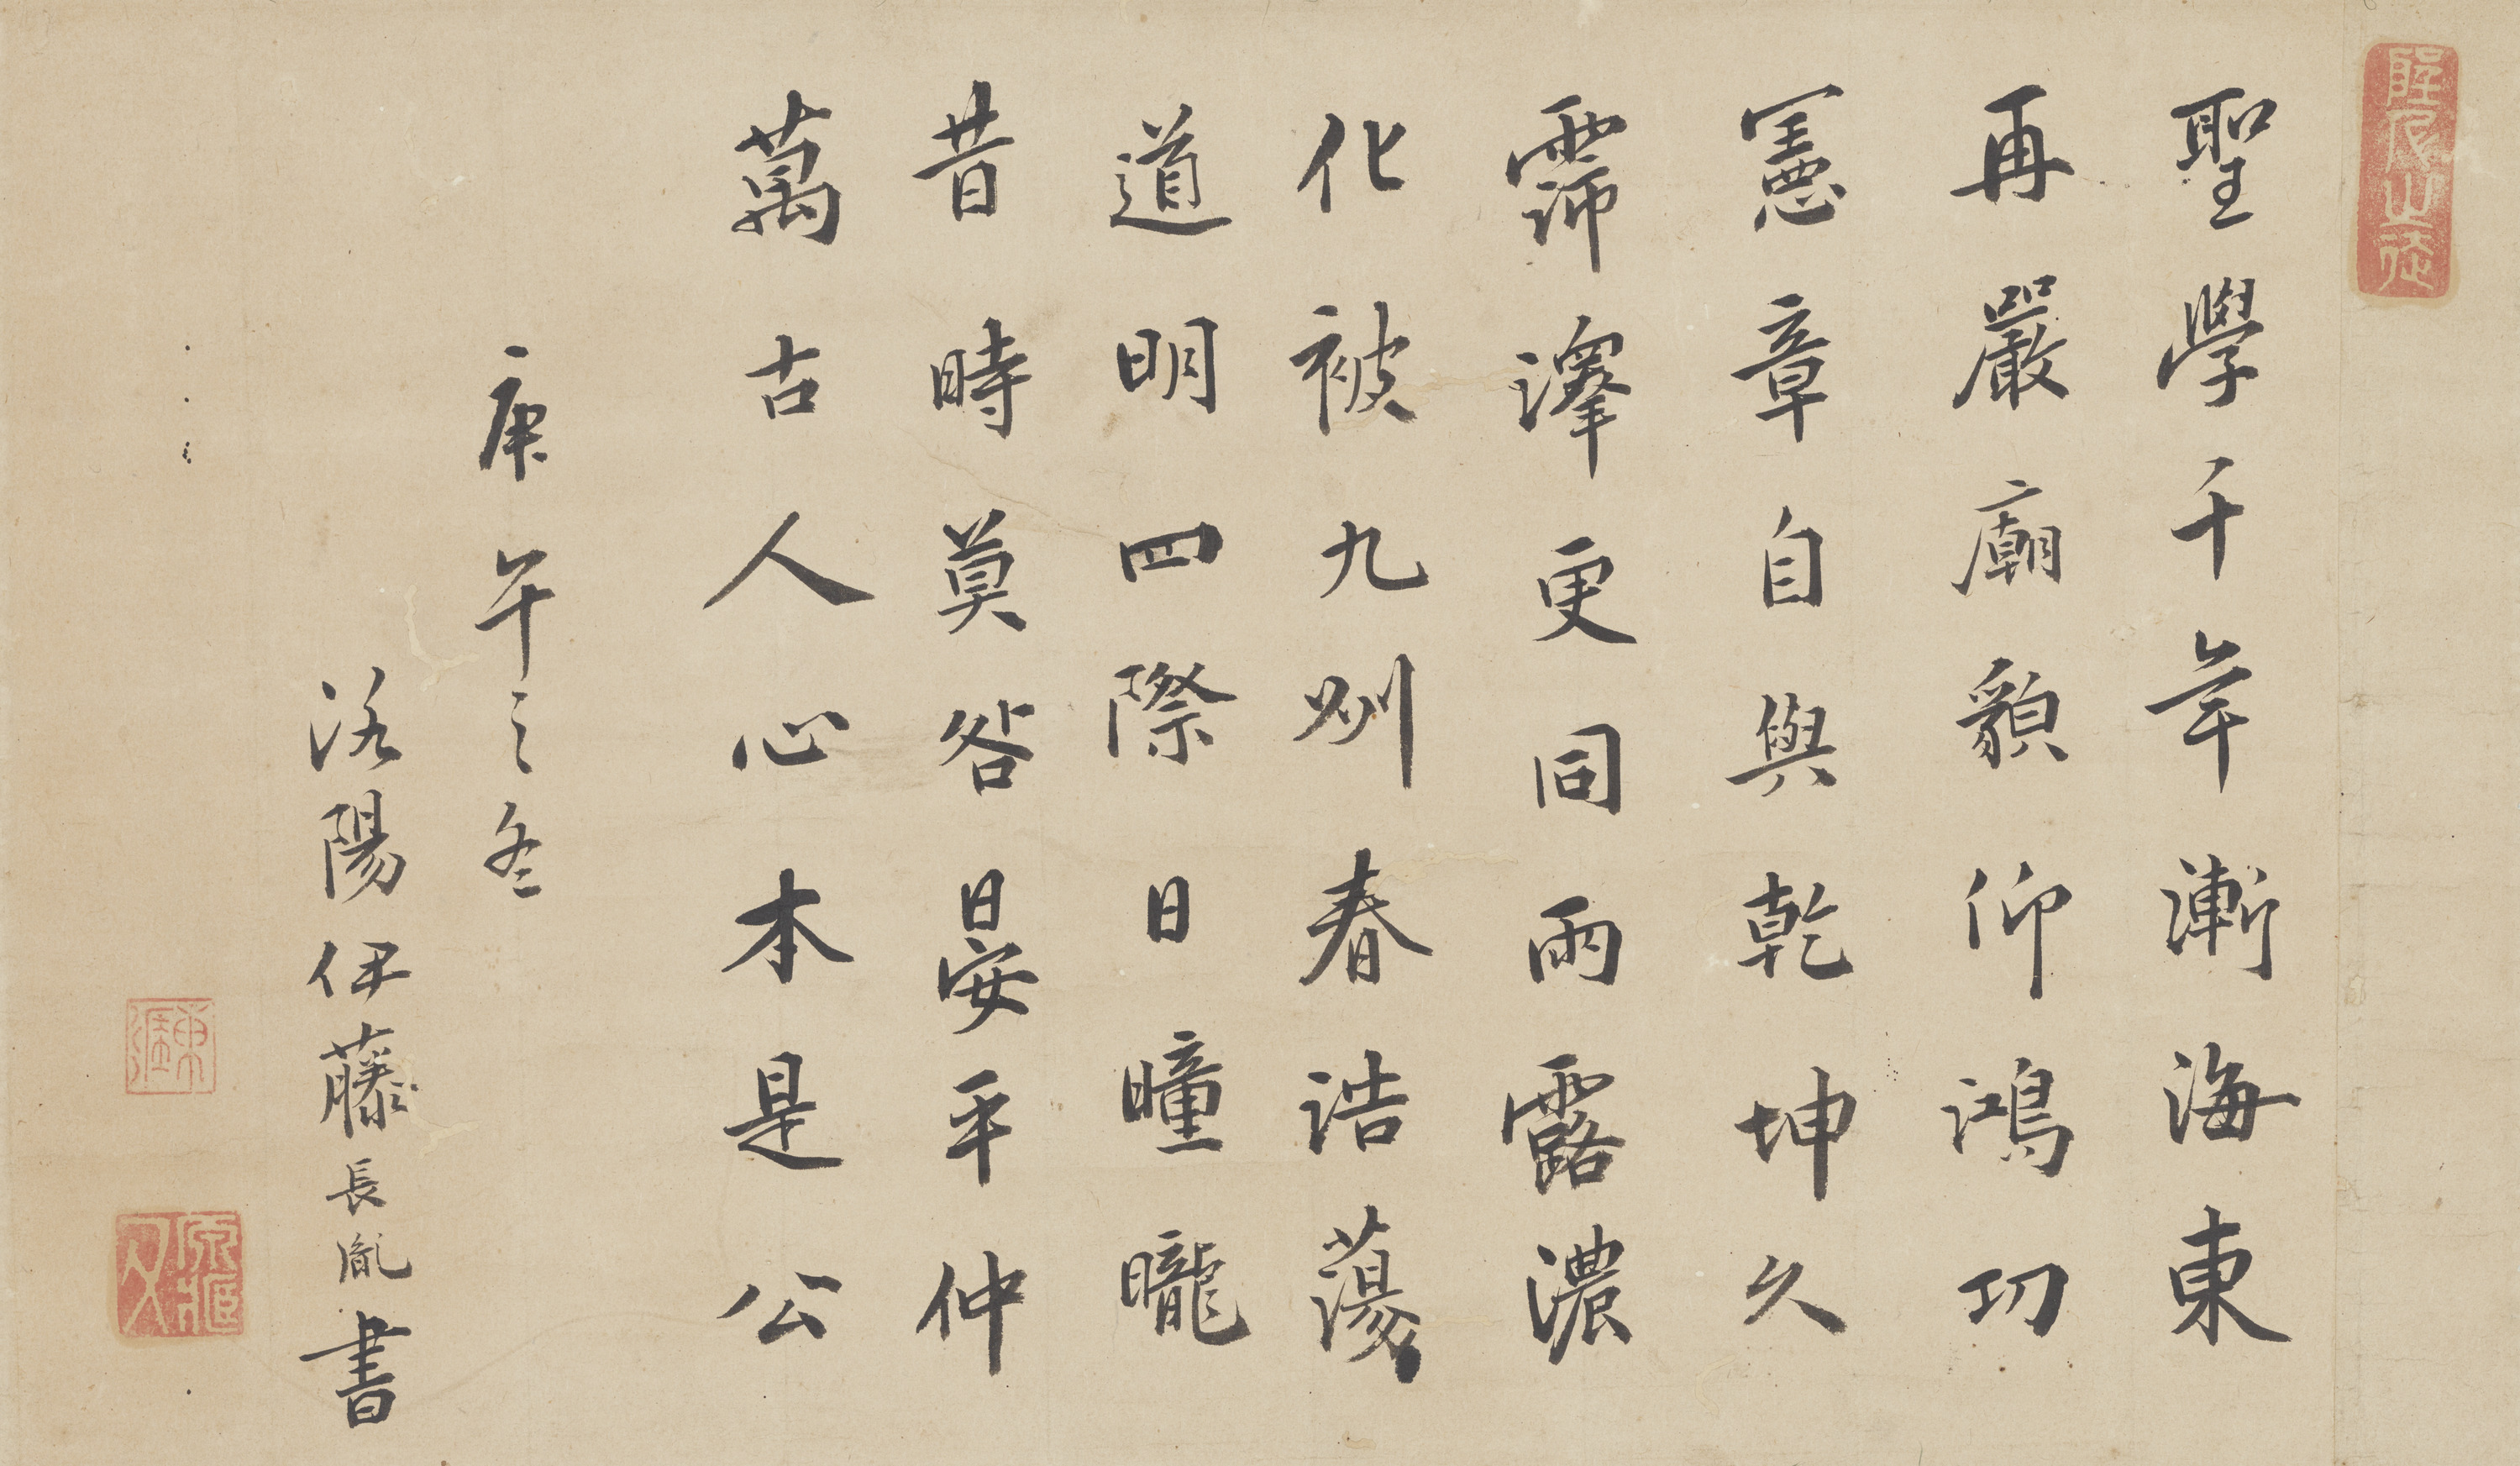 聖學千年漸海東
再嚴廟貌仰鴻功
憲章自與乾坤久
霈澤更同雨露濃
化被九州春浩蕩
道明四際日曈曨
昔時莫咎晏平仲
萬古人心本是公
庚午之冬
洛陽伊藤長胤書
東涯